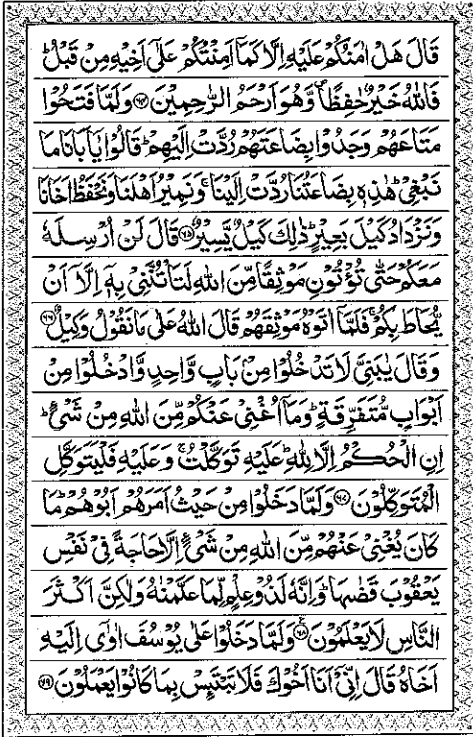 قَالَ هَلْ اٰمَنُكُمْ عَلَيْهِ اِلَّا كَمَاۤ اَمِنْتُكُمْ عَلٰۤى اَخِيْهِ مِنْ قَبْلُ ؕ
فَاللّٰهُ خَيْرٌ حٰفِظًا ۪ وَّهُوَ اَرْحَمُ الرّٰحِمِيْنَ ﴿۶۴﴾ وَلَمَّا فَتَحُوْا
مَتَاعَهُمْ وَجَدُوْا بِضَاعَتَهُمْ رُدَّتْ اِلَيْهِمْ ؕ قَالُوْا يٰۤاَبَانَا مَا
نَبْغِىْ ؕ هٰذِهٖ بِضَاعَتُنَا رُدَّتْ اِلَيْنَا ۚ وَنَمِيْرُ اَهْلَنَا وَنَحْفَظُ اَخَانَا
وَنَزْدَادُ كَيْلَ بَعِيْرٍ ؕ ذٰلِكَ كَيْلٌ يَّسِيْرٌ ﴿۶۵﴾ قَالَ لَنْ اُرْسِلَهٗ
مَعَكُمْ حَتّٰى تُؤْتُوْنِ مَوْثِقًا مِّنَ اللّٰهِ لَتَاْتُنَّنِىْ بِهٖۤ اِلَّاۤ اَنْ
يُّحَاطَ بِكُمْ ۚ فَلَمَّاۤ اٰتَوْهُ مَوْثِقَهُمْ قَالَ اللّٰهُ عَلٰى مَا نَقُوْلُ وَكِيْلٌ ﴿۶۶﴾
وَقَالَ يٰبَنِىَّ لَا تَدْخُلُوْا مِنْۢ بَابٍ وَّاحِدٍ وَّادْخُلُوْا مِنْ
اَبْوَابٍ مُّتَفَرِّقَةٍ ؕ وَمَاۤ اُغْنِىْ عَنْكُمْ مِّنَ اللّٰهِ مِنْ شَىْءٍ ؕ
اِنِ الْحُكْمُ اِلَّا لِلّٰهِ ؕ عَلَيْهِ تَوَكَّلْتُ ۚ وَعَلَيْهِ فَلْيَتَوَكَّلِ
الْمُتَوَكِّلُوْنَ ﴿۶۷﴾ وَلَمَّا دَخَلُوْا مِنْ حَيْثُ اَمَرَهُمْ اَبُوْهُمْ ؕ مَا
كَانَ يُغْنِىْ عَنْهُمْ مِّنَ اللّٰهِ مِنْ شَىْءٍ اِلَّا حَاجَةً فِىْ نَفْسِ
يَعْقُوْبَ قَضٰىهَا ؕ وَاِنَّهٗ لَذُوْ عِلْمٍ لِّمَا عَلَّمْنٰهُ وَلٰكِنَّ اَكْثَرَ
النَّاسِ لَا يَعْلَمُوْنَ ﴿۶۸﴾ وَلَمَّا دَخَلُوْا عَلٰى يُوْسُفَ اٰوٰۤى اِلَيْهِ
اَخَاهُ قَالَ اِنِّىْۤ اَنَا اَخُوْكَ فَلَا تَبْتَئِسْ بِمَا كَانُوْا يَعْمَلُوْنَ ﴿۶۹﴾